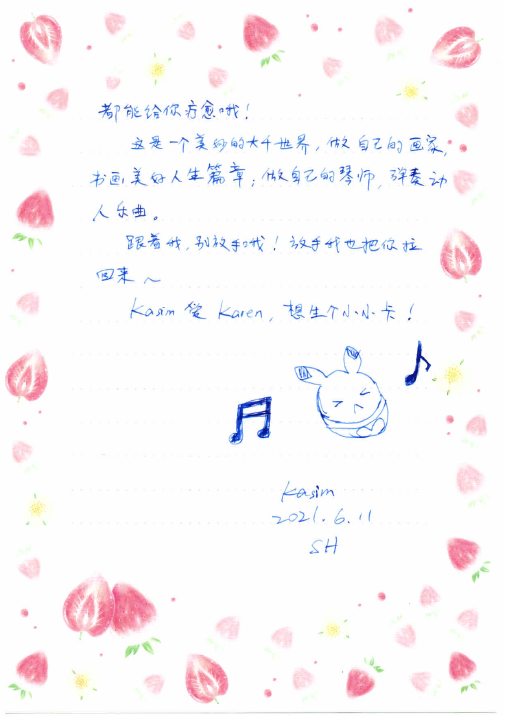 都能给你疗愈哦！
这是一个美妙的大千世界，做自己的画家，
书画美好人生篇章；做自己的琴师，弹奏动
人乐曲。
跟着我，别放手哦！放手我也把你拉
回来～
Kasim 爱 Karen，想生个小小卡！
Kasim
2021.6.11
SH